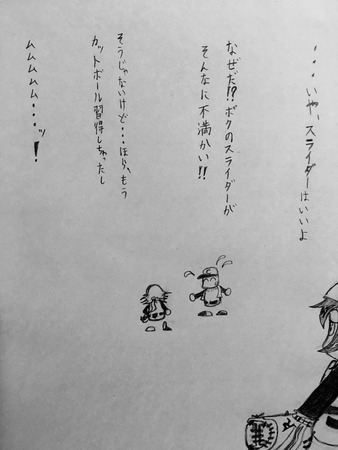 ・・・いや、スライダーはいいよ
なぜだ!?ボクのスライダーが
そんなに不満かい!!
そうじゃないけど・・ほら、もう
カットボール習得しちゃったし
ムムムムム・・・ッ!